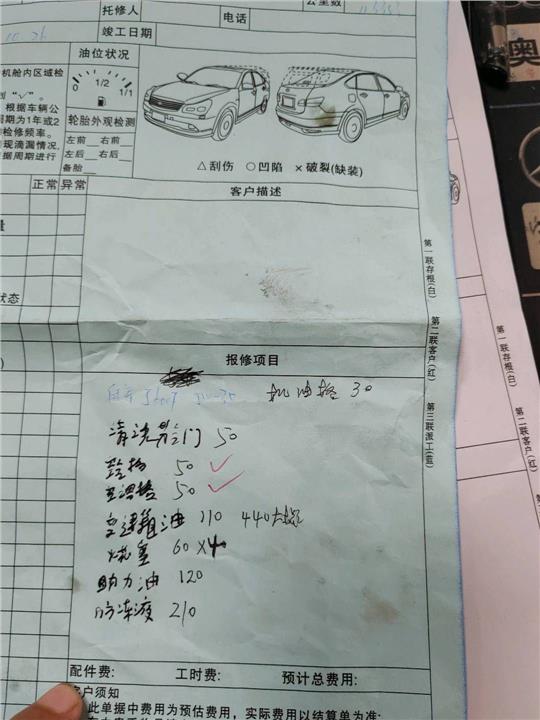 托修人
电话
公里数
竣工日期
10.26
机舱内区域检
"√"。
根据车辆公
周期为1年或2
检修频率。
现滴漏情况,
据周期进行
油位状况
0 1/2 1/1
轮胎外观检测
左前 右前
左后 右后
备胎
△刮伤 ○凹陷 ×破裂(缺装)
正常 异常
客户描述
量
状态
第一联存根(白)
第二联客户(红)
第三联派工(蓝)
第一联存根(白)
第二联客户(红)
奥
报修项目
机油格 30
清洗节气门 50
空格 50 ✓
空调格 50 ✓
变速箱油 110 440
火花塞 60×4
助力油 120
防冻液 210
配件费: 工时费: 预计总费用:
客户须知
此单据中费用为预估费用,实际费用以结算单为准: